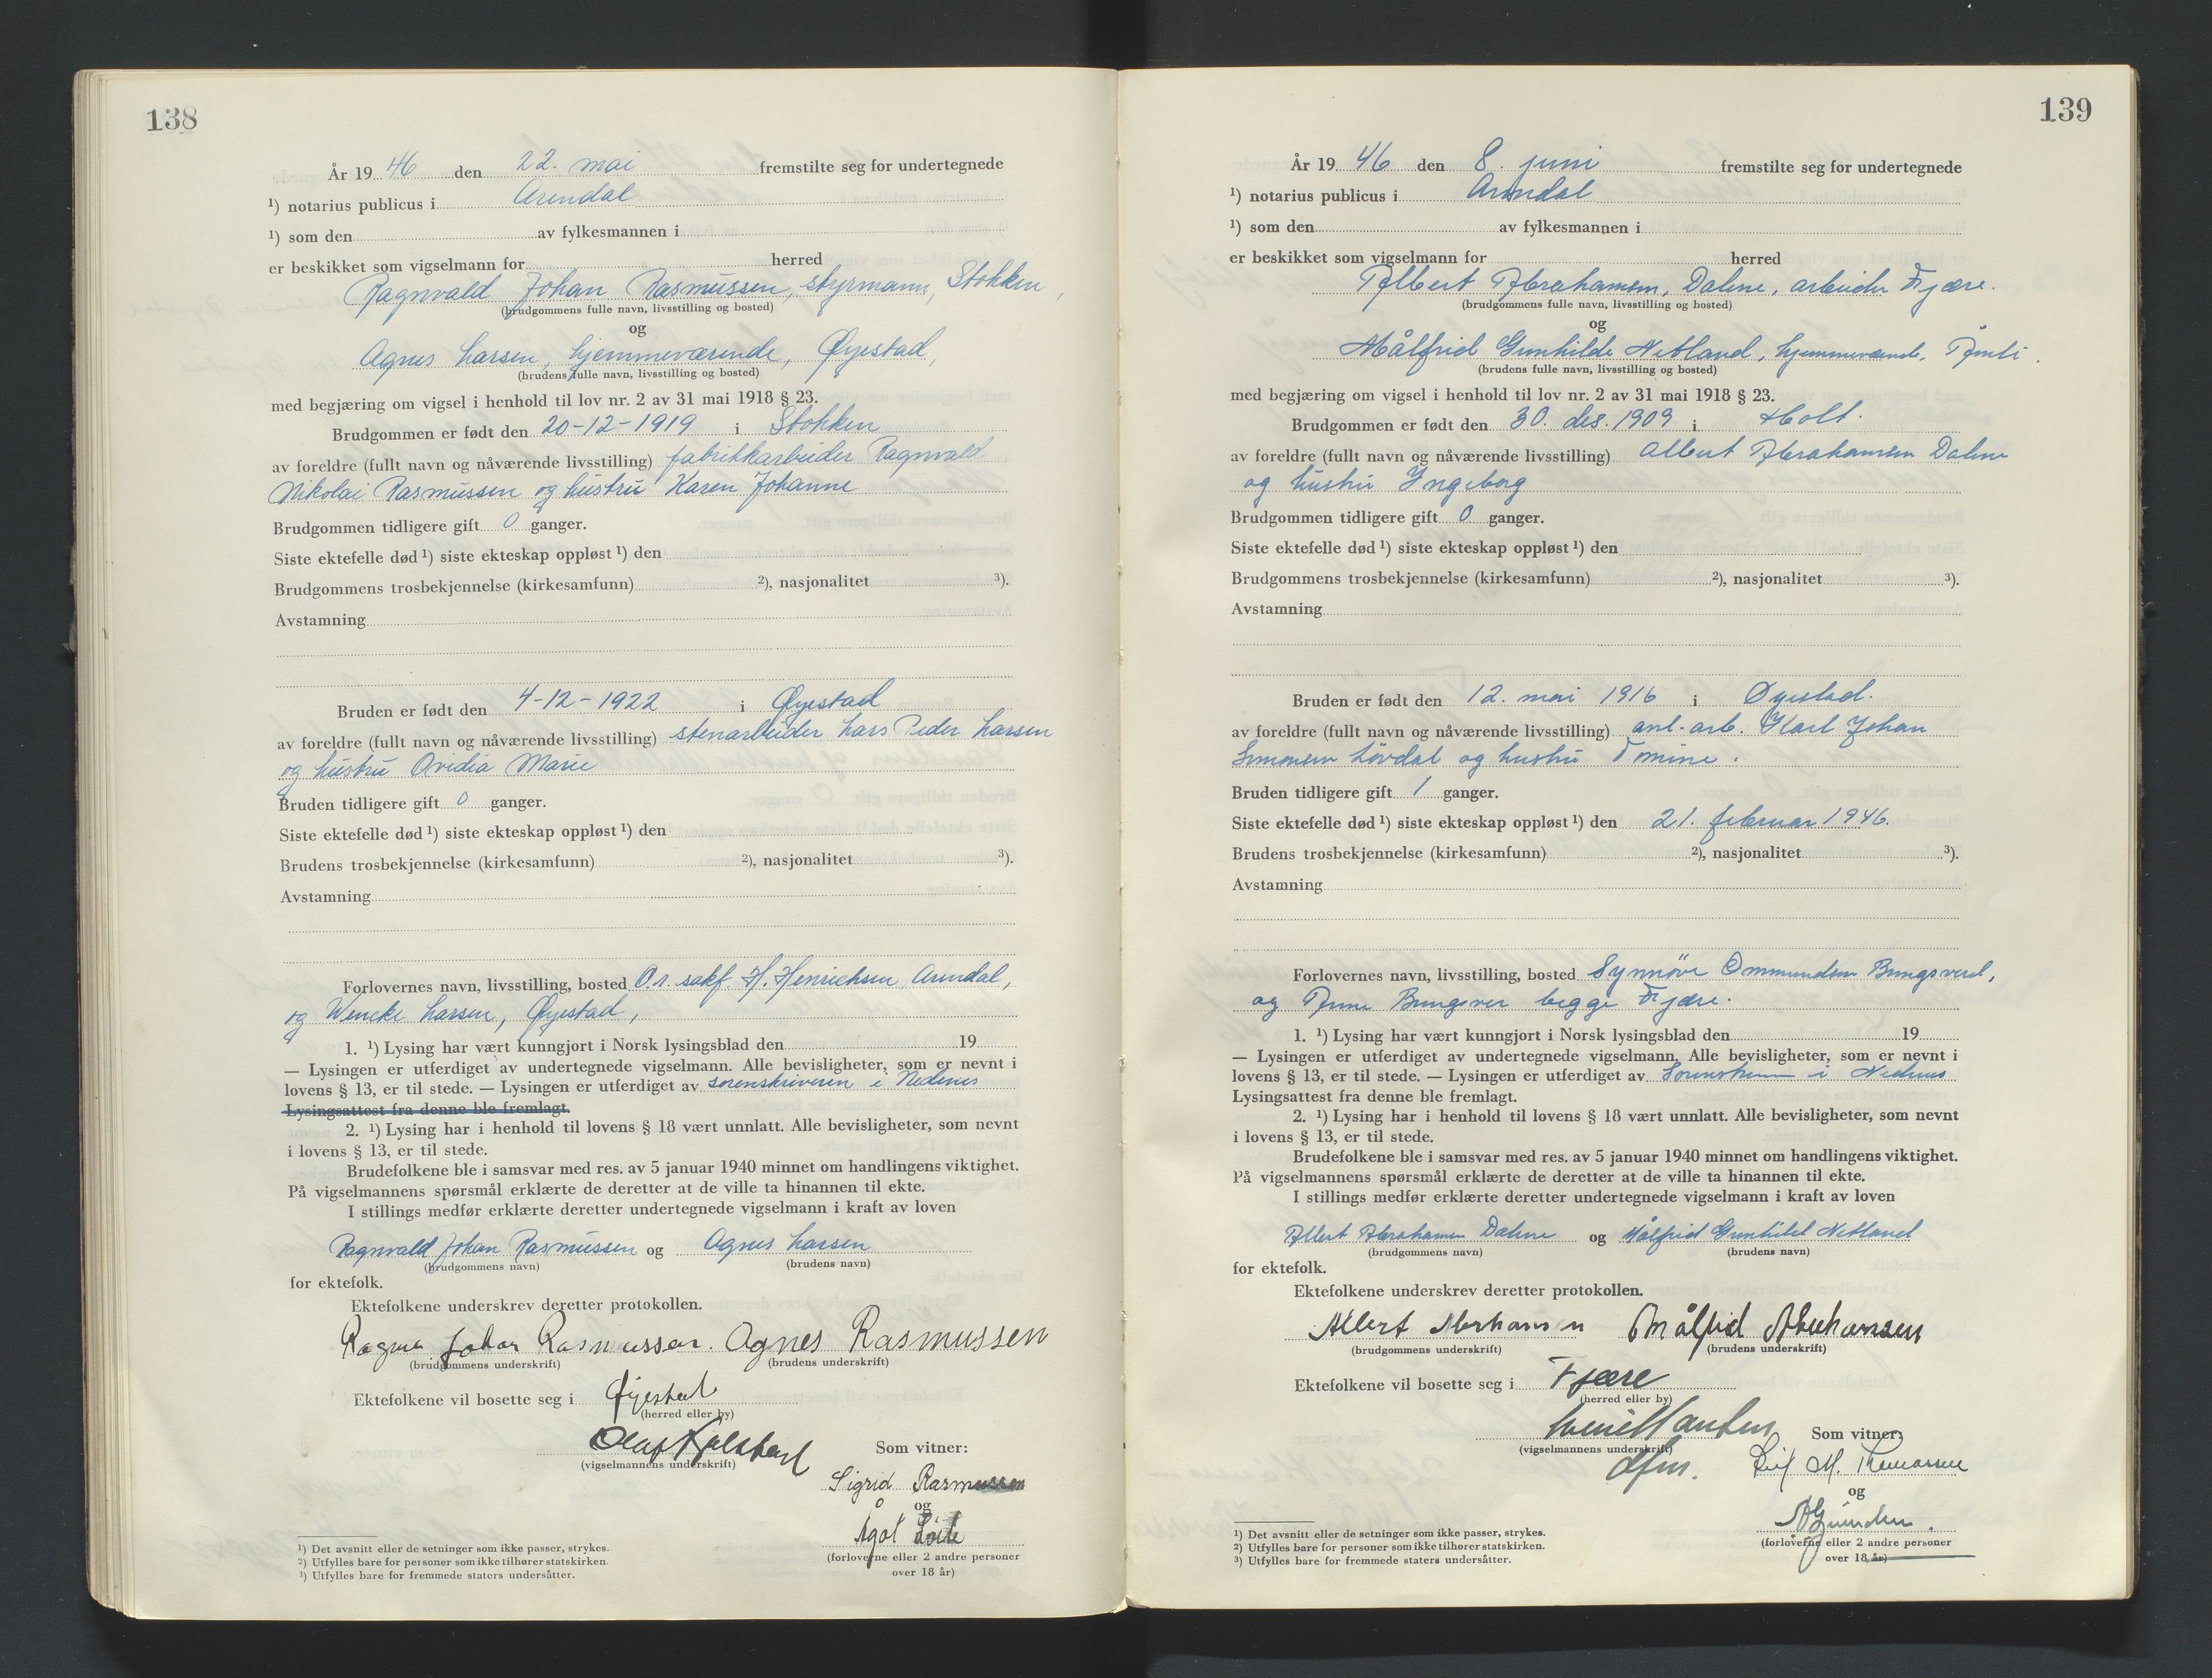 138
År 19 46 den 22. mai fremstilte seg for undertegnede
¹) notarius publicus i Arendal
¹) som den av fylkesmannen i
er beskikket som vigselmann for herred
Ragnvald Johan Rasmussen, styrmann, Stokken,
(brudgommens fulle navn, livsstilling og bosted)
og
Agnes Larsen, hjemmeværende, Øyestad,
(brudens fulle navn, livsstilling og bosted)
med begjæring om vigsel i henhold til lov nr. 2 av 31 mai 1918 § 23.
Brudgommen er født den 20-12-1919 i Stokken
av foreldre (fullt navn og nåværende livsstilling) fabrikkarbeider Ragnvald
Nikolai Rasmussen og hustru Karen Johanne
Brudgommen tidligere gift 0 ganger.
Siste ektefelle død ¹) siste ekteskap oppløst ¹) den
Brudgommens trosbekjennelse (kirkesamfunn) ²), nasjonalitet ³).
Avstamning
Bruden er født den 4-12-1922 i Øyestad
av foreldre (fullt navn og nåværende livsstilling) stenarbeider Lars Peder Larsen
og hustru Ovidia Marie
Bruden tidligere gift 0 ganger.
Siste ektefelle død ¹) siste ekteskap oppløst ¹) den
Brudens trosbekjennelse (kirkesamfunn) ²), nasjonalitet ³).
Avstamning
Forlovernes navn, livsstilling, bosted O.r. sakf. H. Henrichsen Arendal,
og Wencke Larsen, Øyestad,
1. ¹) Lysing har vært kunngjort i Norsk lysingsblad den 19
— Lysingen er utferdiget av undertegnede vigselmann. Alle bevisligheter, som er nevnt i
lovens § 13, er til stede. — Lysingen er utferdiget av sorenskriveren i Nedenes
Lysingsattest fra denne ble fremlagt.
2. ¹) Lysing har i henhold til lovens § 18 vært unnlatt. Alle bevisligheter, som nevnt
i lovens § 13, er til stede.
Brudefolkene ble i samsvar med res. av 5 januar 1940 minnet om handlingens viktighet.
På vigselmannens spørsmål erklærte de deretter at de ville ta hinannen til ekte.
I stillings medfør erklærte deretter undertegnede vigselmann i kraft av loven
Ragnvald Johan Rasmussen og Agnes Larsen
(brudgommens navn) (brudens navn)
for ektefolk.
Ektefolkene underskrev deretter protokollen.
Johan Rasmussen. Agnes Rasmussen
(brudgommens underskrift) (brudens underskrift)
Ektefolkene vil bosette seg i Øyestad
(herred eller by)
Olaf
(vigselmannens underskrift)
Som vitner:
Sigrid Rasmussen
og
Ågot
(forloverne eller 2 andre personer
over 18 år)
¹) Det avsnitt eller de setninger som ikke passer, strykes.
²) Utfylles bare for personer som ikke tilhører statskirken.
³) Utfylles bare for fremmede staters undersåtter.
139
År 19 46 den 8. juni fremstilte seg for undertegnede
¹) notarius publicus i Arendal
¹) som den av fylkesmannen i
er beskikket som vigselmann for herred
Albert Abrahamsen, Dalene, arbeider Fjære.
(brudgommens fulle navn, livsstilling og bosted)
og
Målfrid Gunhilde Netland, hjemmeværende,
(brudens fulle navn, livsstilling og bosted)
med begjæring om vigsel i henhold til lov nr. 2 av 31 mai 1918 § 23.
Brudgommen er født den 30. des. 1909 i Holt.
av foreldre (fullt navn og nåværende livsstilling) Albert Abrahamsen Dalene
og hustru Ingeborg
Brudgommen tidligere gift 0 ganger.
Siste ektefelle død ¹) siste ekteskap oppløst ¹) den
Brudgommens trosbekjennelse (kirkesamfunn) ²), nasjonalitet ³).
Avstamning
Bruden er født den 12. mai 1916 i Øyestad.
av foreldre (fullt navn og nåværende livsstilling) anl.-arb. Karl Johan
Simonsen Løvdal og hustru Tomine.
Bruden tidligere gift 1 ganger.
Siste ektefelle død ¹) siste ekteskap oppløst ¹) den 21. februar 1946.
Brudens trosbekjennelse (kirkesamfunn) ²), nasjonalitet ³).
Avstamning
Forlovernes navn, livsstilling, bosted Synnöve Ommundsen
og begge Fjære.
1. ¹) Lysing har vært kunngjort i Norsk lysingsblad den 19
— Lysingen er utferdiget av undertegnede vigselmann. Alle bevisligheter, som er nevnt i
lovens § 13, er til stede. — Lysingen er utferdiget av Sorenskriveren i Nedenes
Lysingsattest fra denne ble fremlagt.
2. ¹) Lysing har i henhold til lovens § 18 vært unnlatt. Alle bevisligheter, som nevnt
i lovens § 13, er til stede.
Brudefolkene ble i samsvar med res. av 5 januar 1940 minnet om handlingens viktighet.
På vigselmannens spørsmål erklærte de deretter at de ville ta hinannen til ekte.
I stillings medfør erklærte deretter undertegnede vigselmann i kraft av loven
Albert Abrahamsen Dalene og Målfrid Gunhild Netland
(brudgommens navn) (brudens navn)
for ektefolk.
Ektefolkene underskrev deretter protokollen.
Albert Abrahamsen Målfrid Abrahamsen
(brudgommens underskrift) (brudens underskrift)
Ektefolkene vil bosette seg i Fjære
(herred eller by)
(vigselmannens underskrift)
Som vitner:
og
(forloverne eller 2 andre personer
over 18 år)
¹) Det avsnitt eller de setninger som ikke passer, strykes.
²) Utfylles bare for personer som ikke tilhører statskirken.
³) Utfylles bare for fremmede staters undersåtter.